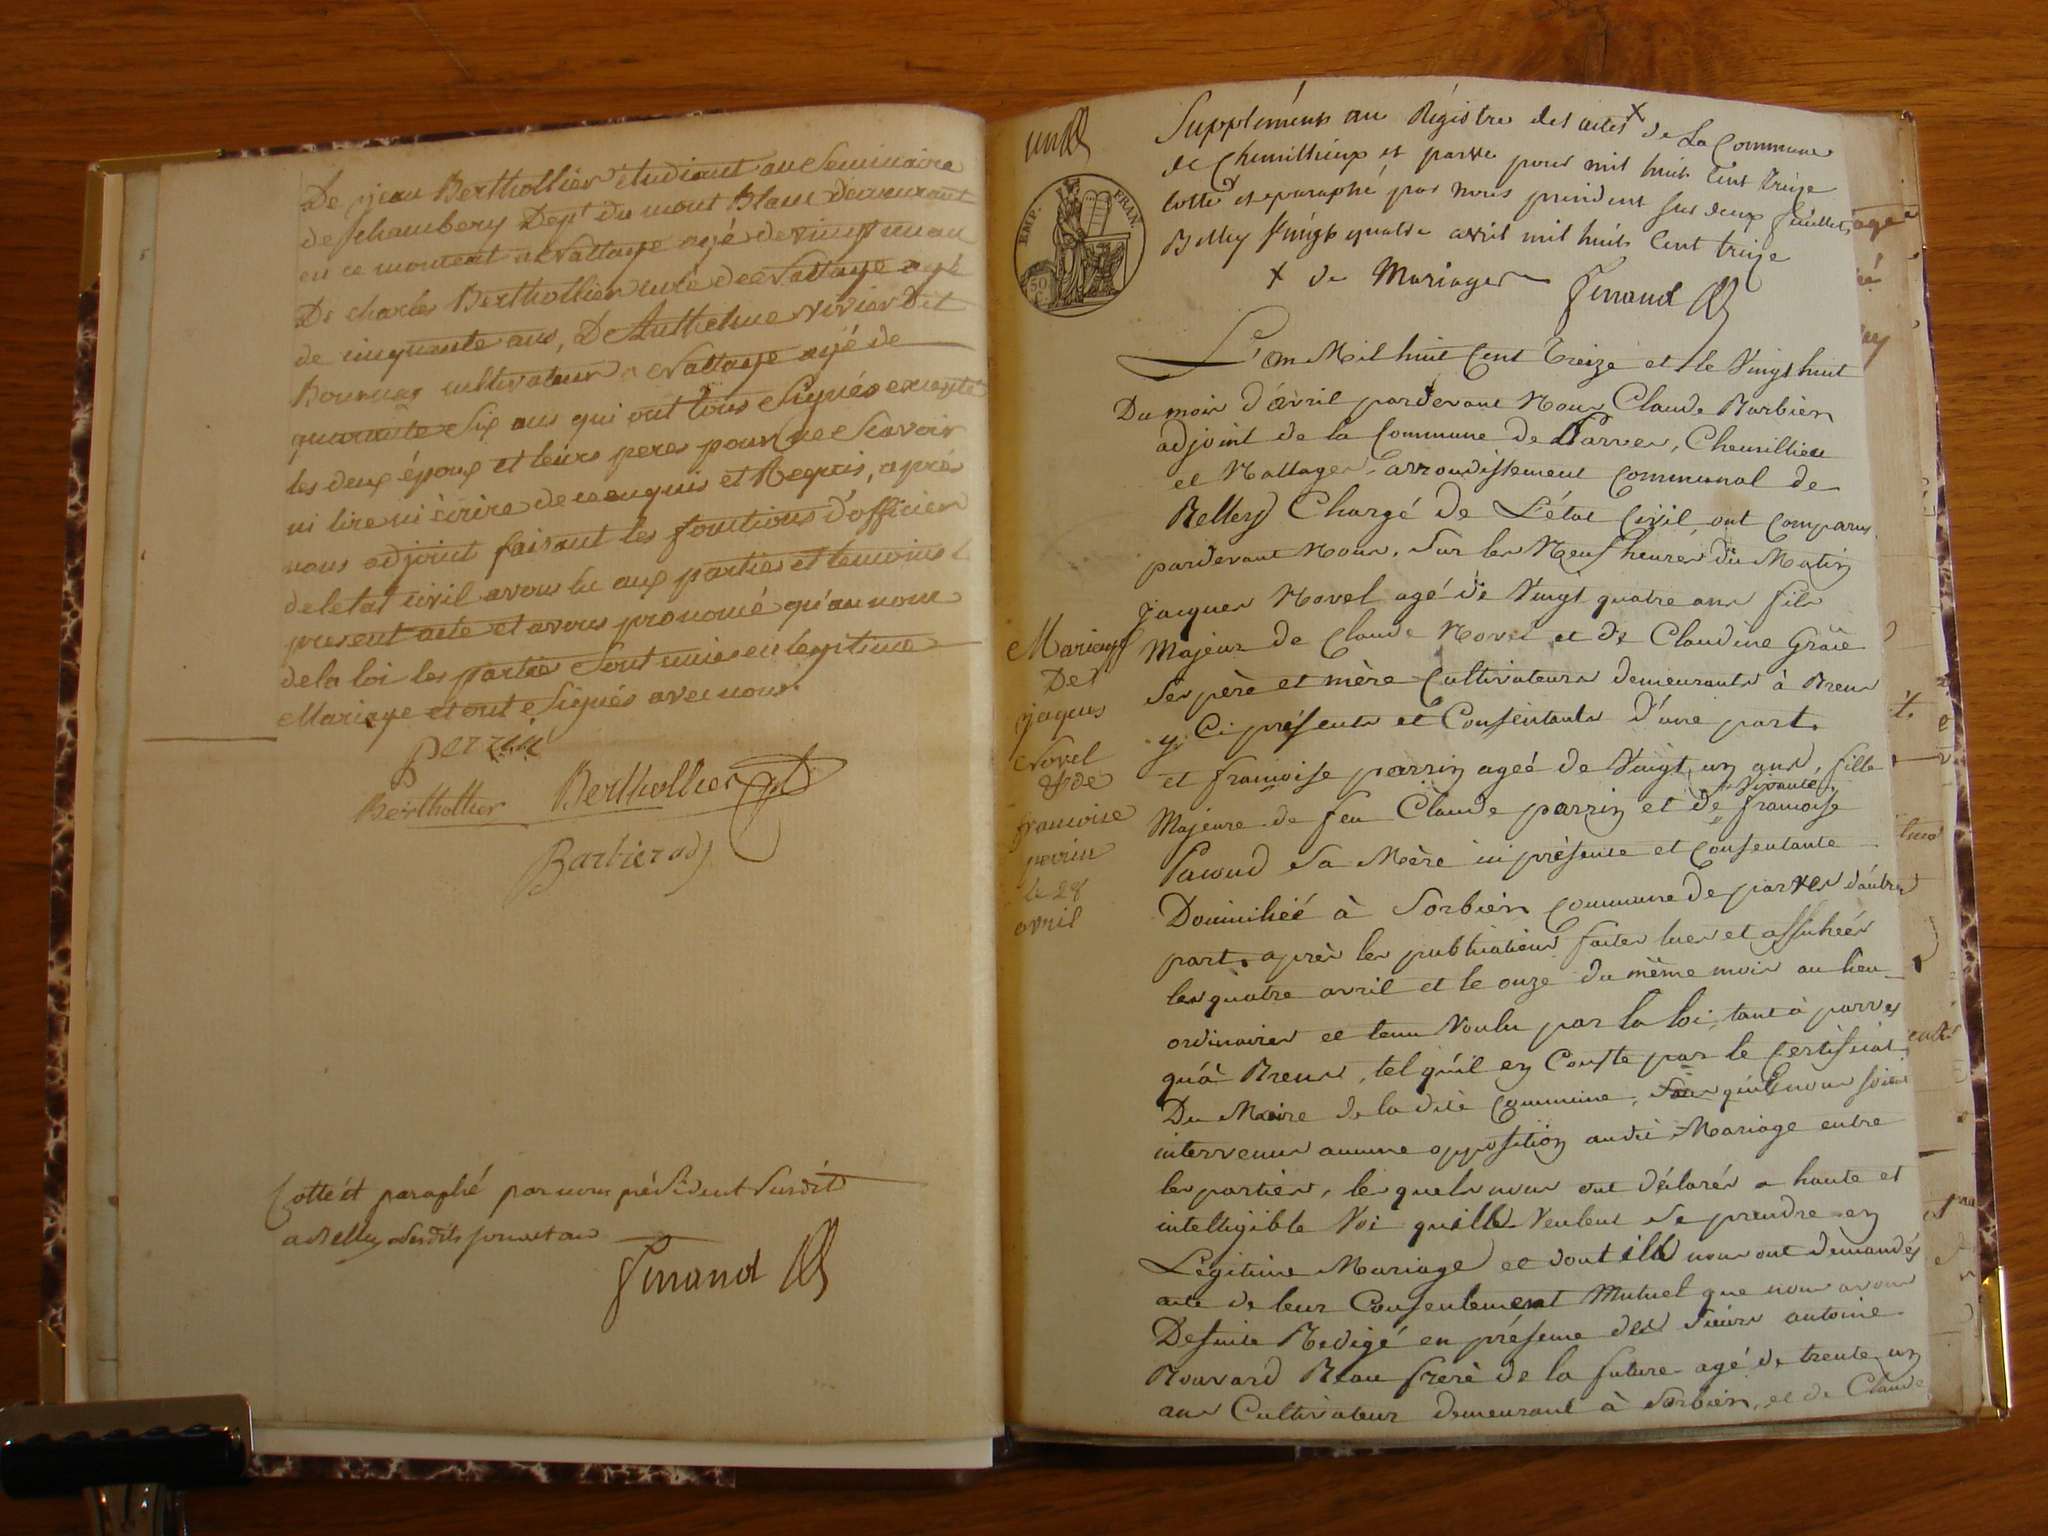 De jean Berthollier étudiant au Seminaire
de chambery Dept du mont Blanc demeurant
en ce moment a Nattage agé de vingt un an
De charles Berthollier curé de Nattage agé
de cinquante ans, De Anthelme vivier Dit
cultivateur a Nattage agé de
quarante Six ans qui ont tous Signés excepté
les deux époux et leurs peres pour ne Scavoir
ni lire ni écrire de ce enquis et Requis, aprés
nous adjoint faisant les fonctions d'officier
de letat civil avons lu aux parties et temoins le
present acte et avons prononcé qu'au nom
de la loi les partie Sont unies en legitime
Mariage et ont Signés avec nous.
perrin
Berthollier Berthollier
Barbier adj
Cotté et paraphé par nous président Susdit
a Belley Susdits jour et an
Ferrand
un
Supplément au Régistre des actes x de La Commune
de Chemillieux et parve pour mil huit Cent treize
Cotté et paraphé par nous président sur deux feuillets
Belley Vingt quatre avril mil huit Cent treize
x de Mariages Ferrand
EMP. FRAN.
50 C.
L'an Mil huit Cent Treize et le Vingt huit
Du mois d'avril pardevant Nous Claude Barbier
adjoint de la Commune de Parves, Chemillieu
et Nattages, arrondissement Communal de
Belley Chargé de L'état Civil ont Comparus
pardevant Nous, Sur les Neuf heures du Matin
Jacques Novel agé de Vingt quatre ans fils
Majeur de Claude Novel et de Claudine
Ses père et mère Cultivateurs demeurants à Brens
y Ci présents et Consentants d'une part.
et francoise perrin ageé de Vingt un ans, fille
Majeure de feu Claude perrin et de vivante francoise
Pacoud Sa Mère ici présente et Consentante
Domiciliée à Sorbier Commune de parves d'autre
part. après les publications faites lues et affichées
les quatre avril et le onze du même mois au lieu
ordinaires et tems Voulu par la loi, tant à parves
qu'à Brens, tel qu'il en Conste par le Certificat
Du Maire de la dite Commune, Sans qu'il nous soient
intervenus aucune opposition audit Mariage entre
les parties, les quels nous ont déclarés a haute et
intelligible Voi quills Veulent Se prendre en
Légitime Mariage et dont ils nous ont demandés
acte de leur Consentement Mutuel que nous avons
De suite Redigé en présence des Sieurs antoine
Bouvard Beau frere de la future agé de trente un
ans Cultivateur demeurant à Sorbier, et de Claude
Mariage
De
jaques
Novel
& de
francoise
perrin
le 28
avril